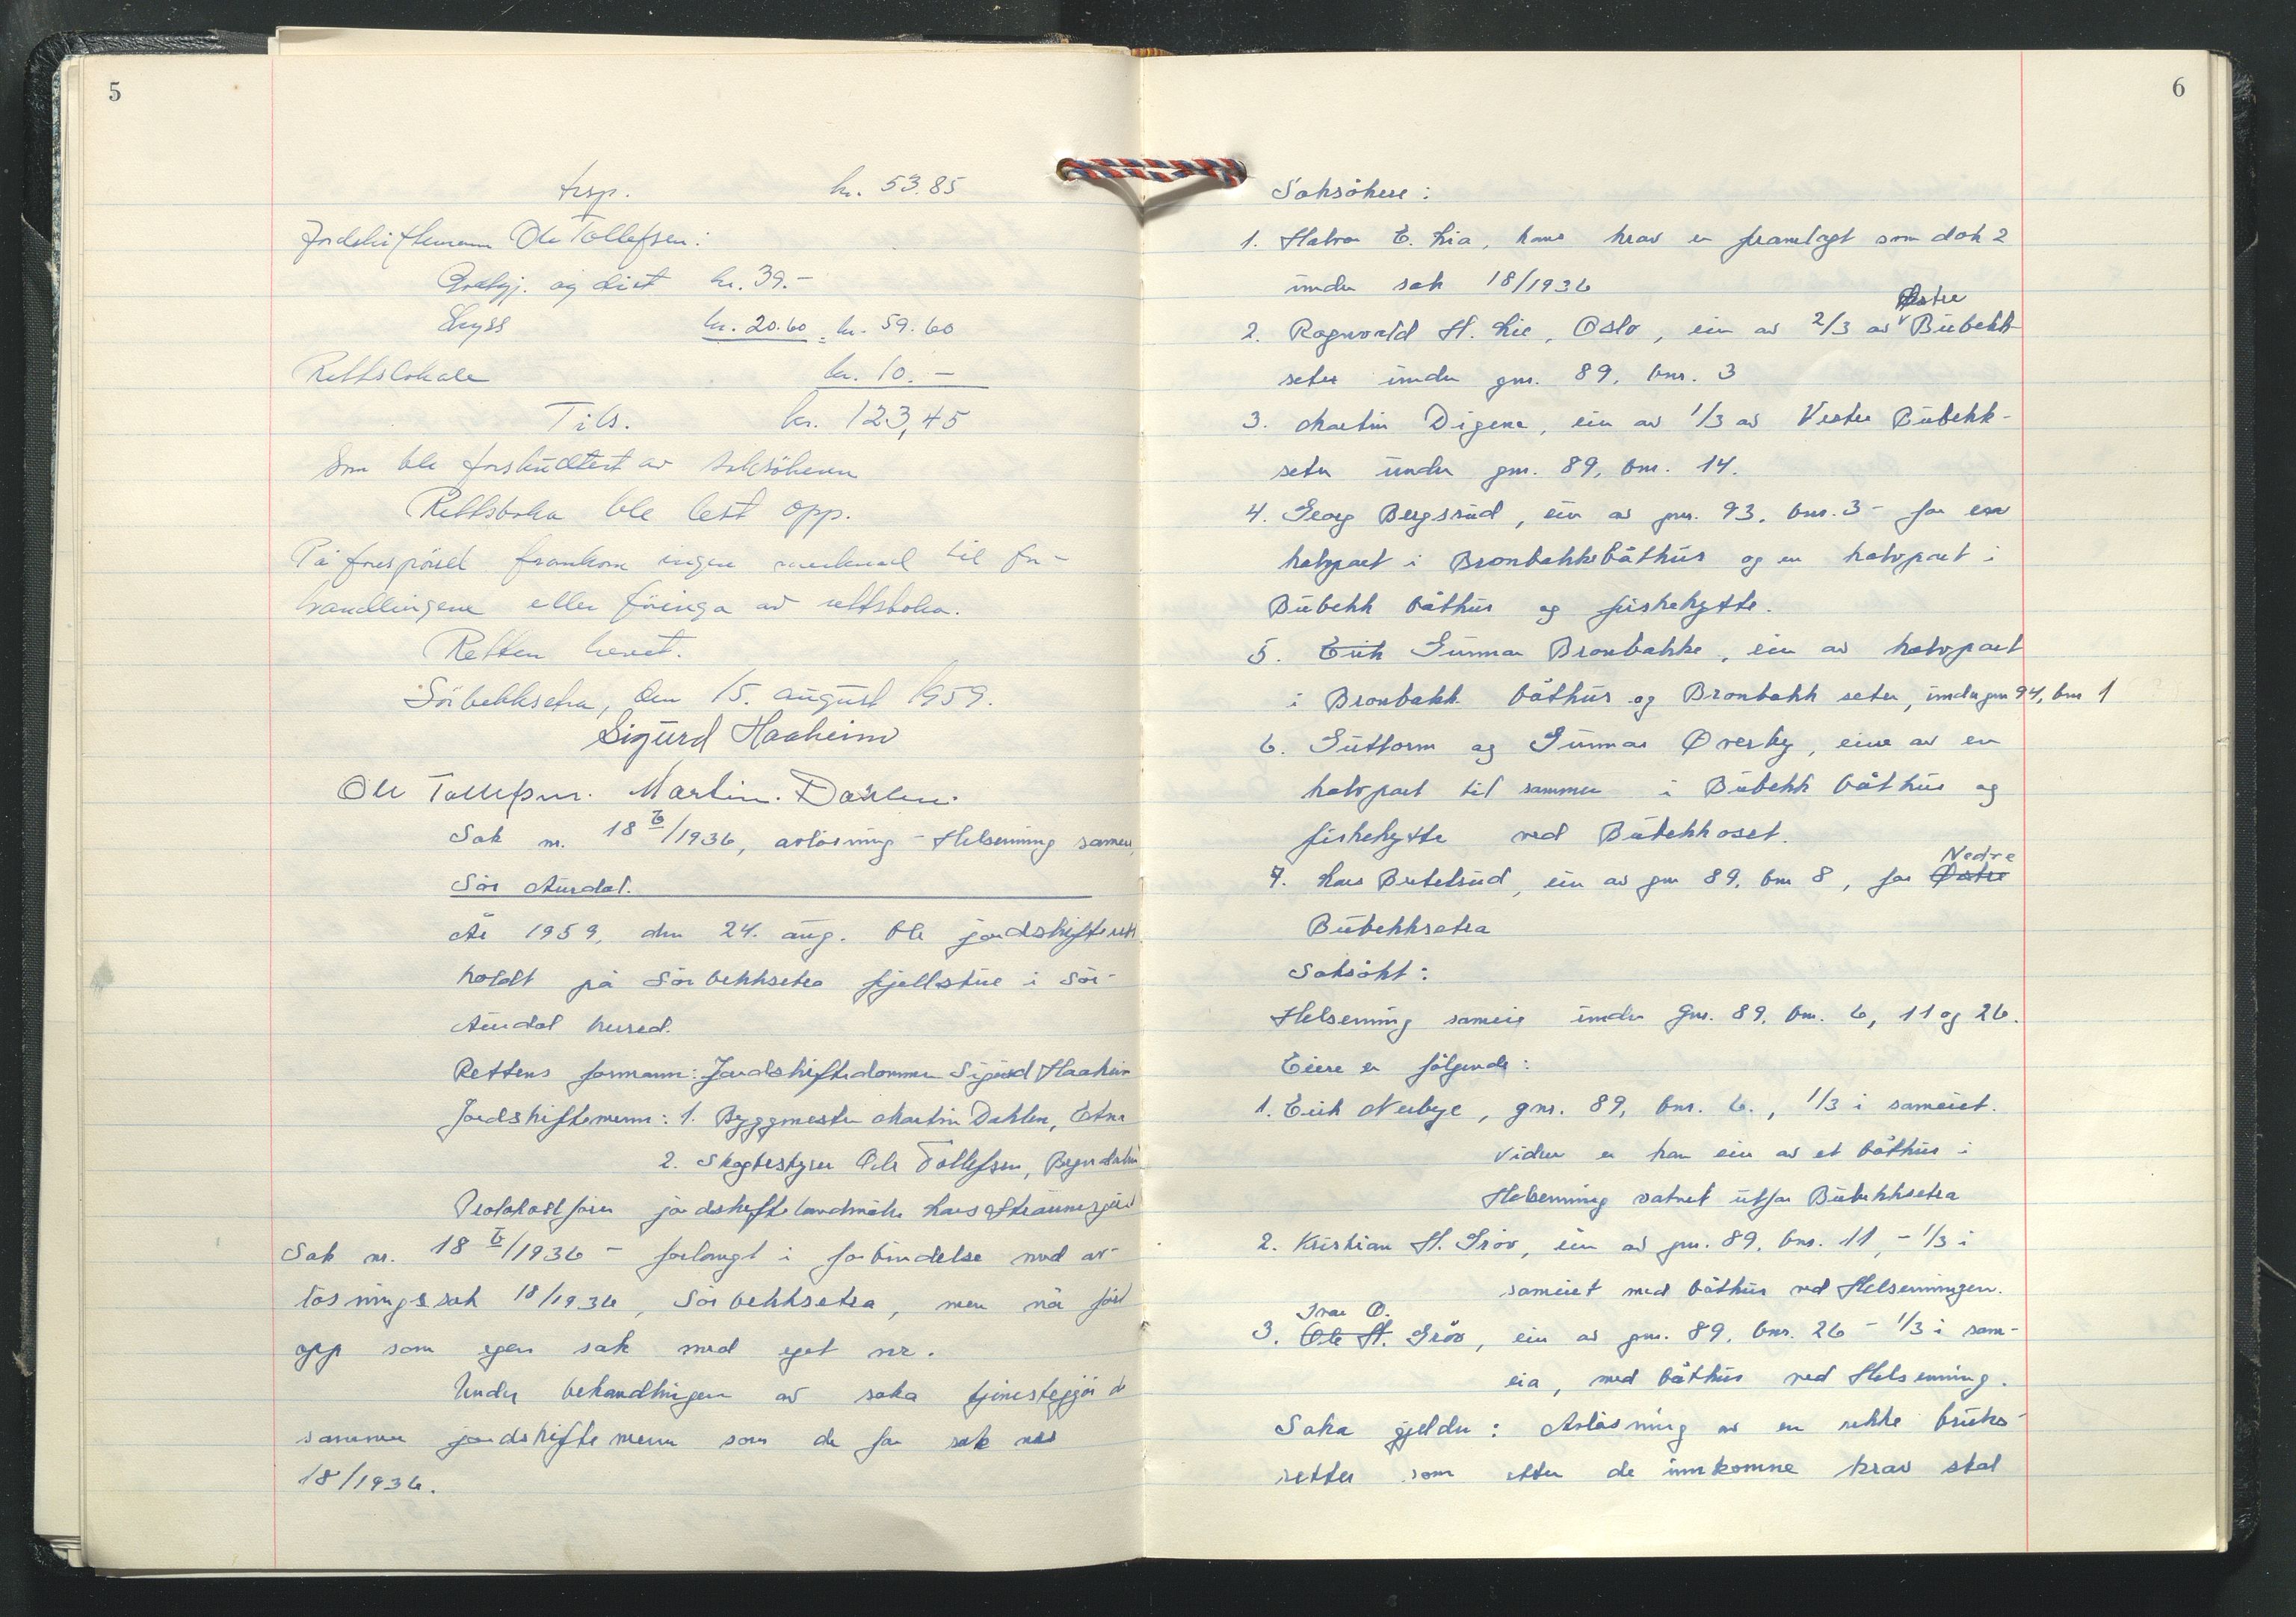 5
trsp. kr. 53.85
Jordskiftemann Ole Tollefsen:
Godtgj. og diet kr. 39.-
Skyss kr. 20.60 = kr. 59.60
Rettslokale kr. 10.-
Tils. kr. 123,45
Som ble forskuttert av saksökeren
Rettsboka ble lest opp.
På forespörsel framkom ingen merknad til for-
handlingene eller föringa av rettsboka.
Retten hevet.
Sörbekksetra, den 15. august 1959.
Sigurd Haaheim
Ole Tollefsen. Martin Dahlen.
Sak nr. 18 b/1936, avlösning - Helsenning sameie,
Sör Aurdal.
År 1959, den 24. aug. ble jordskifterett
holdt på Sörbekksetra fjellstue i Sör-
Aurdal herred.
Rettens formann: Jordskiftedommer Sigurd Haaheim
Jordskiftemenn: 1. Byggmester Martin Dahlen, Etna
2. Skogbestyrer Ole Tollefsen, Begndalen
Protokollförer jordskiftelandmåler Lars
Sak nr. 18 b/1936 - forlangt i forbindelse med av-
lösningssak 18/1936, Sörbekksetra, men nå fört
opp som egen sak med eget nr.
Under behandlingen av saka tjenestegjör de
samme jordskiftemenn som de for sak
18/1936.
6
Saksökere:
1. Halvor E. Lia, hans krav er framlagt som dok 2
under sak 18/1936
Østre
2. Ragnvald H. Lie, Oslo, eier av 2/3 av Bubekk-
seter under gnr. 89, bnr. 3
3. Martin Digene, eier av 1/3 av Vestre Bubekk-
seter under gnr. 89, bnr. 14.
4. Georg Bergsrud, eier av gnr. 93, bnr. 3 - for en
halvpart i Bronbakkebåthus og en halvpart i
Bubekk båthus og fiskehytte.
5. Erik Gunnar Bronbakke, eier av halvpart
i Bronbakk båthus og Bronbakk seter, under gnr 94, bnr 1
6. Guttorm og Gunnar Øverby, eiere av en
halvpart til sammen i Bubekk båthus og
fiskehytte ved Bubekkoset.
Nedre
7. Lars Bertelrud, eier av gnr 89, bnr 8, for Østre
Bubekksetra
Saksökt:
Helsenning sameie under Gnr. 89, bnr. 6, 11 og 26.
Eiere er fölgende:
1. Erik Nerbye, gnr. 89, bnr. 6., 1/3 i sameiet.
Videre er han eier av et båthus i
Helsenning vatnet utfor Bubekksetra
2. Kristian H. Gröv, eier av gnr. 89, bnr. 11, - 1/3 i
sameiet med båthus ved Helsenningen.
Ivar O.
3. Ole H. Gröv, eier av gnr. 89, bnr. 26 - 1/3 i sam-
eia, med båthus ved Helsenning.
Saka gjelder: Avlösning av en rekke bruks-
retter som etter de innkomne krav skal